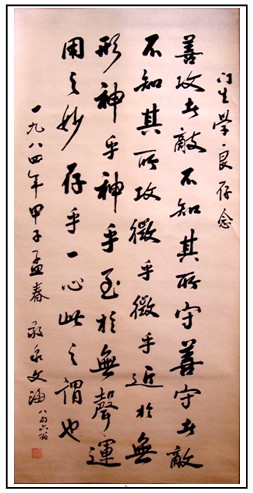 門生學良存念
善攻者敵不知其所守善守者敵
不知其所攻微乎微乎近於無
形神乎神乎至於無聲運
用之妙存乎一心此之謂也
一九八四年甲子孟春 文海